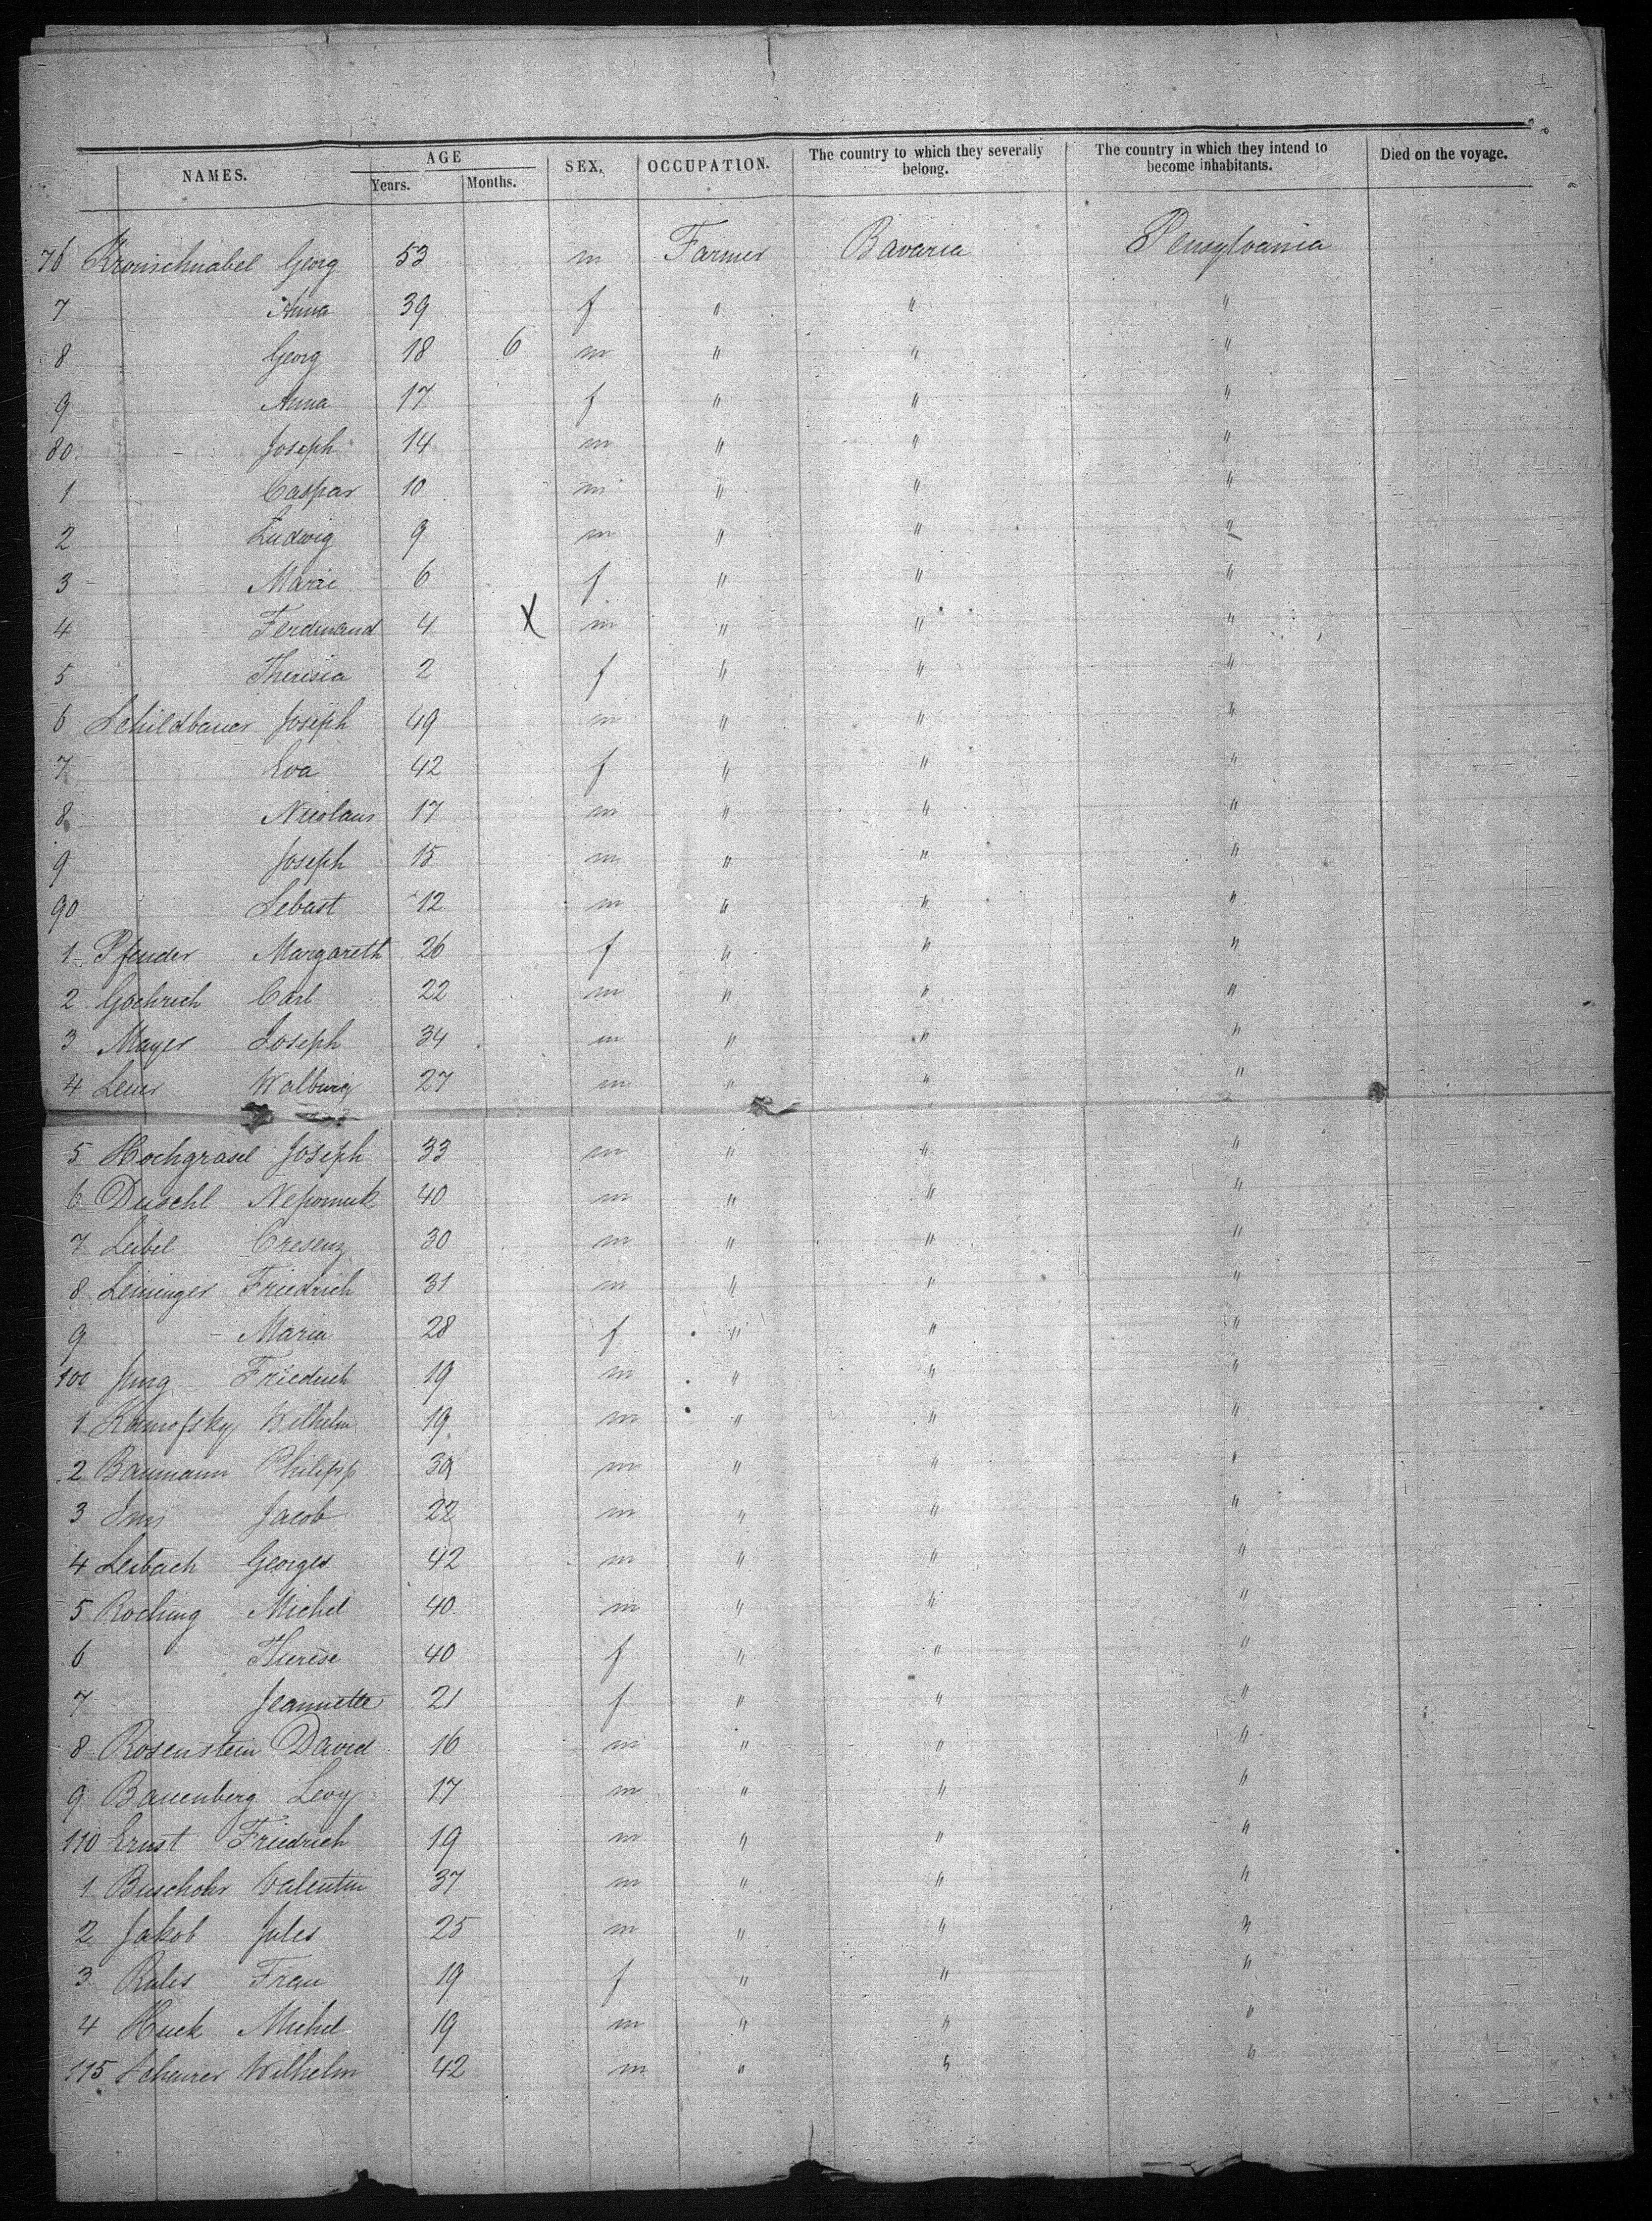 NAMES. AGE SEX. OCCUPATION. The country to which they severally belong. The country in which they intend to become inhabitants. Died on the voyage.
Years. Months.
76 Kronschnabel Georg 53 m Farmer Bavaria Pensylvania
7 Anna 39 f " " "
8 Georg 18 6 m " " "
9 Anna 17 f " " "
80 Joseph 14 m " " "
1 Caspar 10 m " " "
2 Ludwig 9 m " " "
3 Marie 6 f " " "
4 Ferdinand 4 X m " " "
5 Theresia 2 f " " "
6 Schildbauer Joseph 49 m " " "
7 Eva 42 f " " "
8 Nicolaus 17 m " " "
9 Joseph 15 m " " "
90 Sebast 12 m " " "
1 Pfender Margareth 26 f " " "
2 Gochrich Carl 22 m " " "
3 Mayer Joseph 34 m " " "
4 Walburg 27 m " " "
5 Hochgrasel Joseph 33 m " " "
6 Duschl Nepomuk 40 m " " "
7 Leibel Cresenz 30 m " " "
8 Leininger Friedrich 31 m " " "
9 Maria 28 f " " "
100 Jung Friedrich 19 m " " "
1 Wilhelm 19 m " " "
2 Baumann Philipp m " " "
3 Jacob 22 m " " "
4 Leibach Georges 42 m " " "
5 Roching Michel 40 m " " "
6 Therese 40 f " " "
7 Jeannette 21 f " " "
8 Rosenstein David 16 m " " "
9 Bauenberg Levy 17 m " " "
110 Ernst Friedrich 19 m " " "
1 Buschohr Valentin 37 m " " "
2 Jakob Jules 25 m " " "
3 Rulis Frau 19 f " " "
4 Huck Michel 19 m " " "
115 Scheurer Wilhelm 42 m " " "